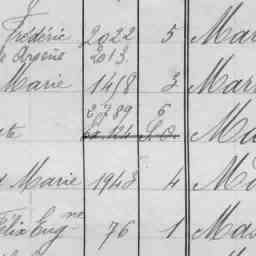 Frédéric 2022 5 Mar
2013
Marie 1458 3 Mar
2789 6
te Ma
Marie 1948 4 M
Félix Eug ne 76 1 Mas